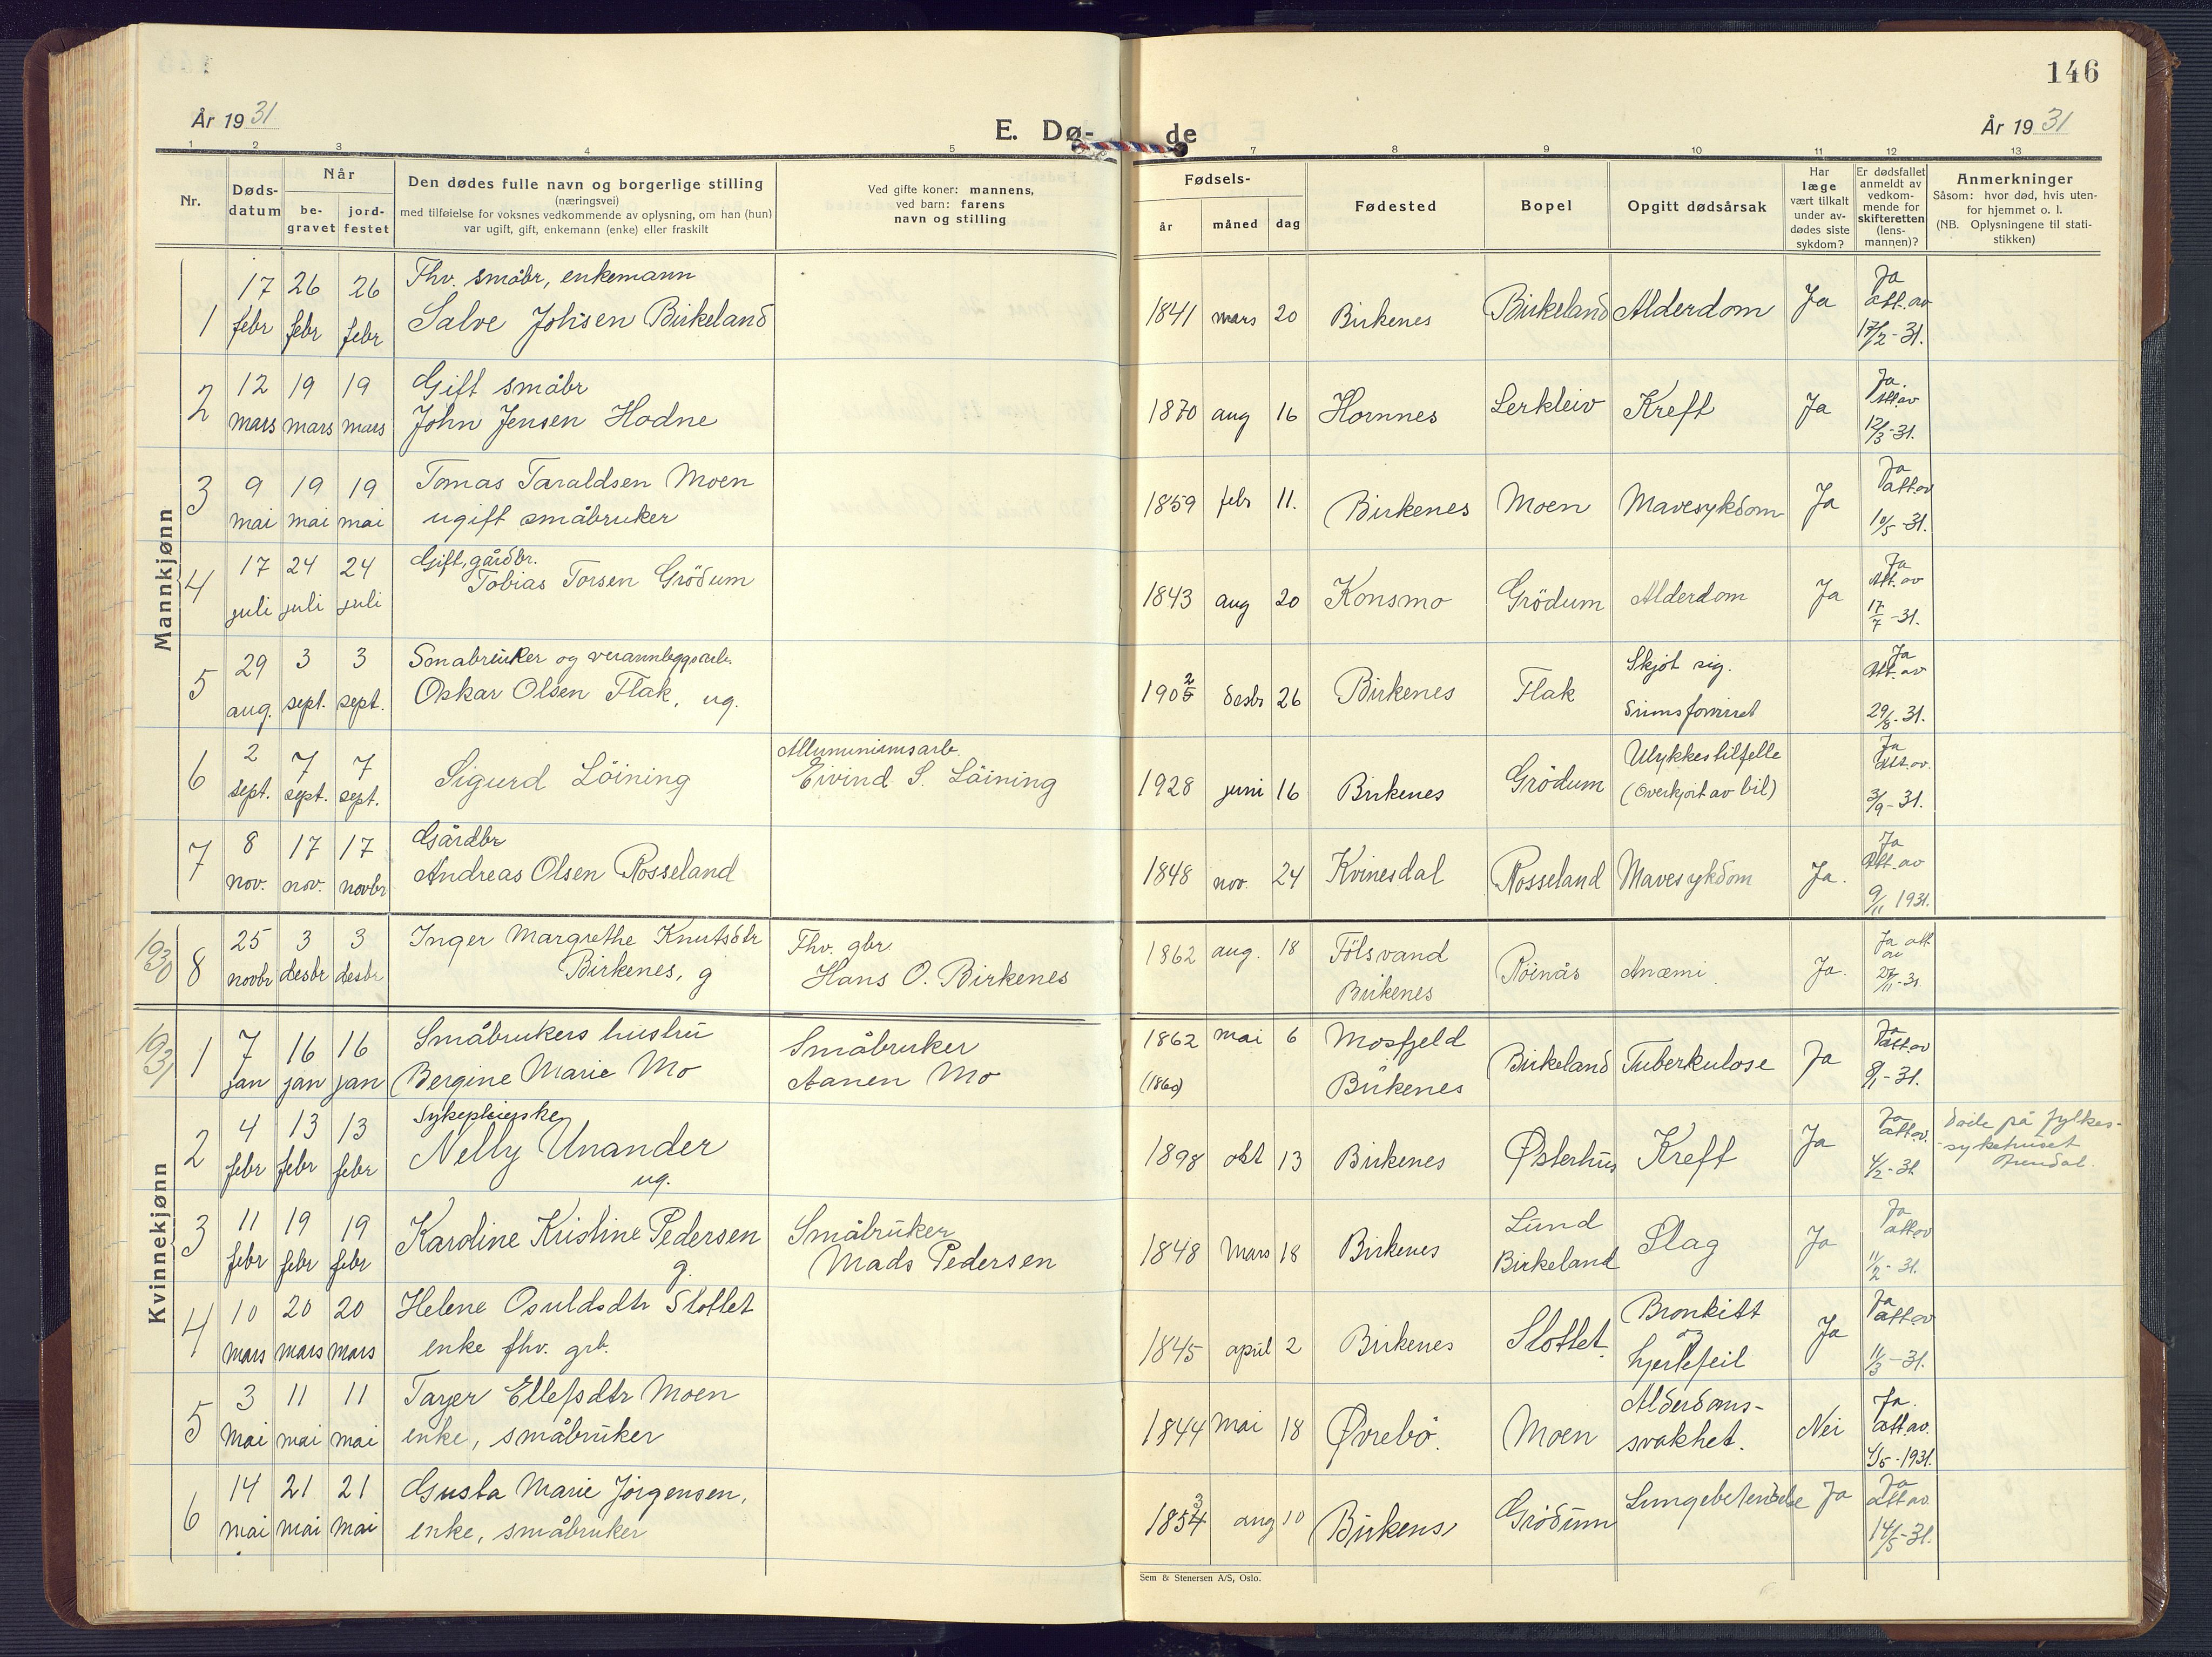 146
År 1931
E. Dø-de
År 1931
1 2 3 4 5 7 8 9 10 11 12 13
Nr.
Døds-datum
Når
be-gravet
jord-festet
Den dødes fulle navn og borgerlige stilling
(næringsvei)
med tilføielse for voksnes vedkommende av oplysning, om han (hun)
var ugift, gift, enkemann (enke) eller fraskilt
Ved gifte koner: mannens,
ved barn: farens
navn og stilling
Fødsels-
år måned dag
Fødested
Bopel
Opgitt dødsårsak
Har læge vært tilkalt under av-dødes siste sykdom?
Er dødsfallet anmeldt av vedkom-mende for skifteretten (lens-mannen)?
Anmerkninger
Såsom: hvor død, hvis uten-
for hjemmet o. l.
(NB. Oplysningene til stati-
stikken)
Mannkjønn
1 17 febr 26 febr 26 febr Fhv. småbr, enkemann
Salve Johsen Birkeland 1841 mars 20 Birkenes Birkeland Alderdom Ja Ja att. av 17/2-31.
2 12 mars 19 mars 19 mars Gift småbr
John Jensen Hodne 1870 aug 16 Hornnes Lerkleiv Kreft Ja Ja. Att av 12/3-31.
3 9 mai 19 mai 19 mai Tomas Taraldsen Moen
ugift småbruker 1859 febr 11. Birkenes Moen Mavesykdom Ja Ja att av 10/5-31.
4 17 juli 24 juli 24 juli Gift, gårdbr.
Tobias Torsen Grödum 1843 aug 20 Konsmo Grödum Alderdom Ja Ja Att. av 17/7-31.
5 29 aug. 3 sept. 3 sept. Smabruker og
Oskar Olsen Flak, ug. 1905 2 desbr 26 Birkenes Flak Skjöt sig.
Sinnsforvirret Ja Att. av 29/8-31.
6 2 sept. 7 sept. 7 sept. Sigurd Löining Alluminiumsarb.
Eivind S. Löining 1928 juni 16 Birkenes Grödum Ulykkestilfelle
(Overkjört av bil) Ja Att. av. 3/9-31.
7 8 nov. 17 nov. 17 novbr Gårdbr
Andreas Olsen Rosseland 1848 nov. 24 Kvinesdal Rosseland Mavesykdom Ja. Ja Att. av 9/11 1931.
1930 8 25 novbr 3 desbr 3 desbr Inger Margrethe Knutsdtr
Birkenes, g Fhv. gbr.
Hans O. Birkenes 1862 aug. 18 Fölsvand
Birkenes Röinås Anæmi Ja. Ja att. av
Kvinnekjønn
1931 1 7 jan 16 jan 16 jan Småbrukers hustru
Bergine Marie Mo Småbruker
Aanen Mo 1862 (1860) mai 6 Mosfjeld
Birkenes Birkeland Tuberkulose Ja Ja att av 8/1-31.
2 4 febr 13 febr 13 febr Sykepleierske
Nelly Unander
ug. 1898 okt 13 Birkenes Østerhus Kreft Ja Ja att av. 4/2-31 döde på fylkes-
-sykehuset
Arendal.
3 11 febr 19 febr 19 febr Karoline Kristine Pedersen
g. Småbruker
Mads Pedersen 1848 Mars 18 Birkenes Lund
Birkeland Slag Ja Ja att av 11/2-31.
4 10 mars 20 mars 20 mars Helene Osuldsdtr Slottet
enke fhv. grb. 1845 april 2 Birkenes Slottet. Bronkitt
og
hjertefeil Ja Ja att av 11/3-31.
5 3 Mai 11 mai 11 mai Tarjer Ellefsdtr Moen
enke, småbruker 1844 Mai 18 Øvrebö. Moen Alderdoms-
svakhet. Nei Ja. att av. 4/5-1931.
6 14 mai 21 mai 21 mai Gusta Marie Jörgensen,
enke, småbruker 1854 3 aug 10 Birkenes Grödum Lungebetendelse Ja Ja att av. 14/5-31.
Sem & Stenersen A/S, Oslo.